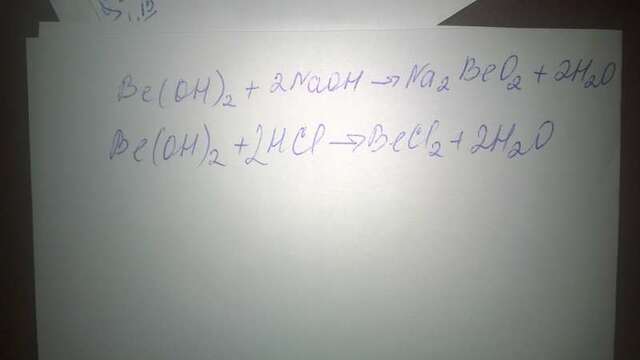 Be(OH)₂ + 2NaOH → Na₂BeO₂ + 2H₂O
Be(OH)₂ + 2HCl → BeCl₂ + 2H₂O